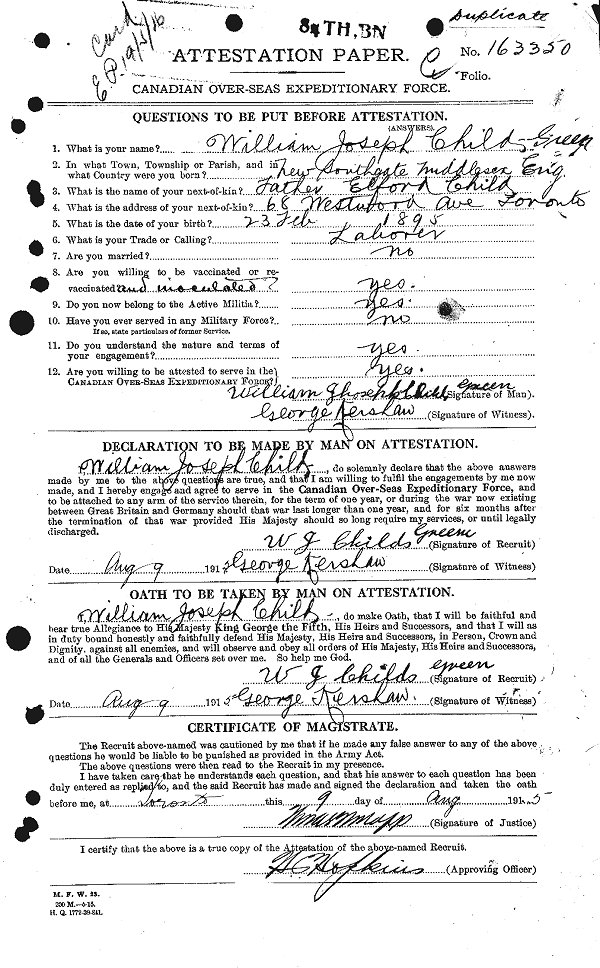 Duplicate
84TH, BN
Card
ATTESTATION PAPER.
No. 163350
Folio.
CANADIAN OVER-SEAS EXPEDITIONARY FORCE.
QUESTIONS TO BE PUT BEFORE ATTESTATION.
(ANSWERS).
1. What is your name? William Joseph Child Green
2. In what Town, Township or Parish, and in
what Country were you born? New Southgate Middlesex Eng
3. What is the name of your next-of-kin? Father Elford Child
4. What is the address of your next-of-kin? 68 Westwood Ave Toronto
5. What is the date of your birth? 23 Feb 1895
6. What is your Trade or Calling? Laborer
7. Are you married? no
8. Are you willing to be vaccinated or re-
vaccinated and inoculated? yes.
9. Do you now belong to the Active Militia? yes.
10. Have you ever served in any Military Force? no
If so, state particulars of former Service.
11. Do you understand the nature and terms of
your engagement? yes.
12. Are you willing to be attested to serve in the
CANADIAN OVER-SEAS EXPEDITIONARY FORCE? Yes.
William Joseph Child Green (Signature of Man).
George Kershaw (Signature of Witness).
DECLARATION TO BE MADE BY MAN ON ATTESTATION.
I, William Joseph Child, do solemnly declare that the above answers
made by me to the above questions are true, and that I am willing to fulfil the engagements by me now
made, and I hereby engage and agree to serve in the Canadian Over-Seas Expeditionary Force, and
to be attached to any arm of the service therein, for the term of one year, or during the war now existing
between Great Britain and Germany should that war last longer than one year, and for six months after
the termination of that war provided His Majesty should so long require my services, or until legally
discharged.
W J Childs Green (Signature of Recruit)
Date Aug 9 1915 George Kershaw (Signature of Witness)
OATH TO BE TAKEN BY MAN ON ATTESTATION.
I, William Joseph Child, do make Oath, that I will be faithful and
bear true Allegiance to His Majesty King George the Fifth, His Heirs and Successors, and that I will as
in duty bound honestly and faithfully defend His Majesty, His Heirs and Successors, in Person, Crown and
Dignity, against all enemies, and will observe and obey all orders of His Majesty, His Heirs and Successors,
and of all the Generals and Officers set over me. So help me God.
W J Childs Green (Signature of Recruit)
Date Aug 9 1915 George Kershaw. (Signature of Witness)
CERTIFICATE OF MAGISTRATE.
The Recruit above-named was cautioned by me that if he made any false answer to any of the above
questions he would be liable to be punished as provided in the Army Act.
The above questions were then read to the Recruit in my presence.
I have taken care that he understands each question, and that his answer to each question has been
duly entered as replied to, and the said Recruit has made and signed the declaration and taken the oath
before me, at Toronto this 9 day of Aug 1915
(Signature of Justice)
I certify that the above is a true copy of the Attestation of the above-named Recruit.
Hopkins (Approving Officer)
M. F. W. 23.
200 M.—6-15.
H. Q. 1772-39-841.